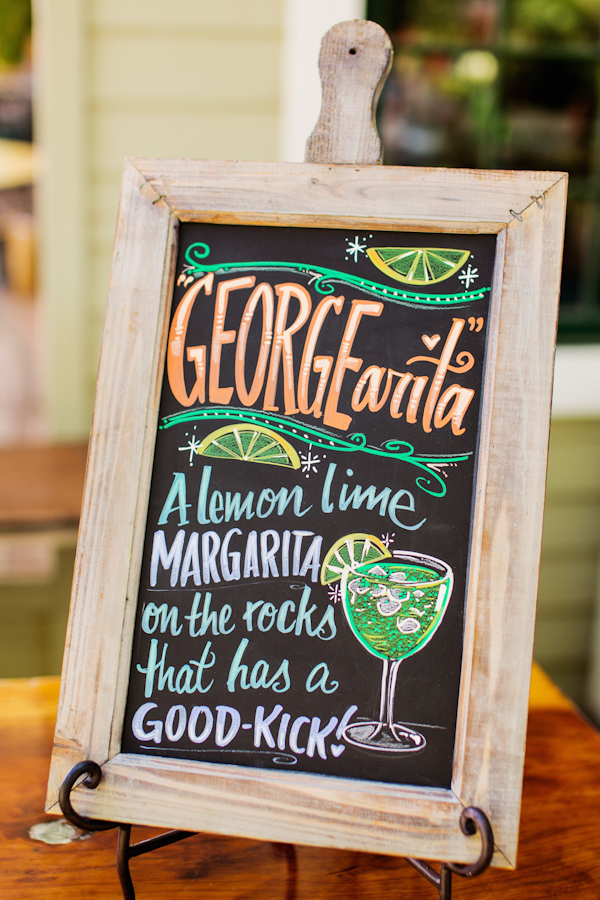 "GEORGEarita"
A lemon lime
MARGARITA
on the rocks
that has a
GOOD-KICK!